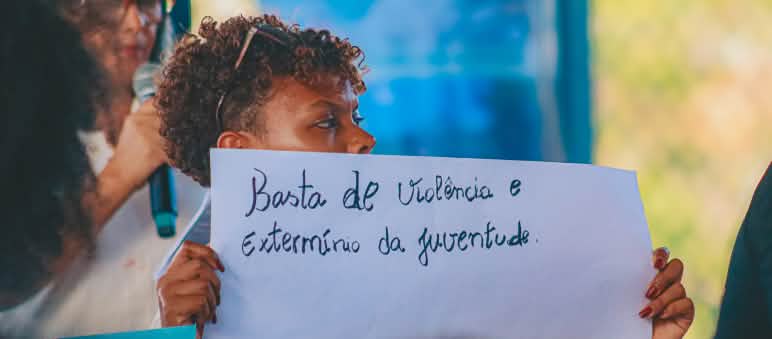 Basta de violência e
extermínio da juventude.